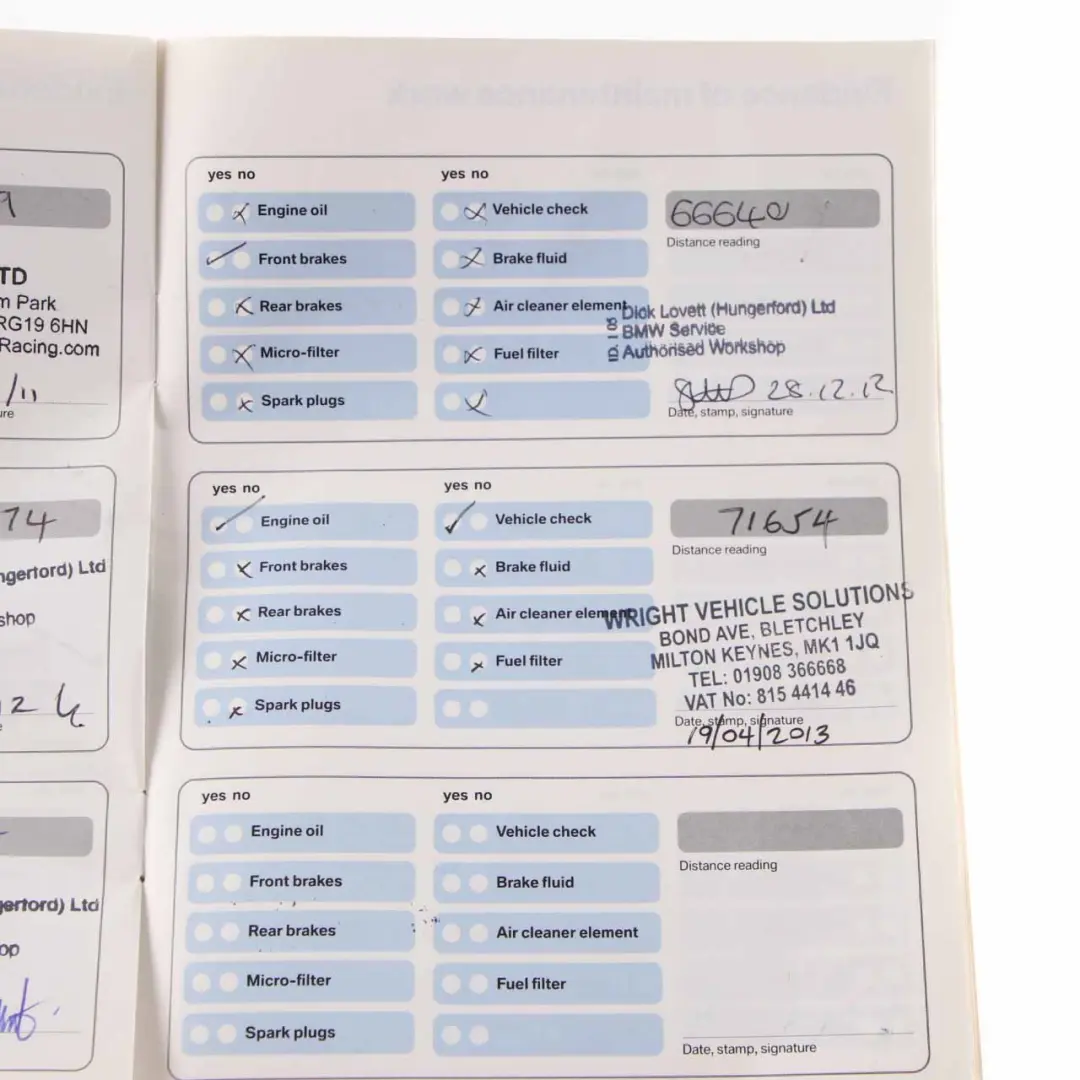 9
TD
m Park
RG19 6HN
Racing.com
/11
ure
74
ngerford) Ltd
shop
12
e
gerford) Ltd
op
yes no
yes no
Engine oil
Vehicle check
66640
Front brakes
Brake fluid
Distance reading
Rear brakes
Air cleaner element
Micro-filter
Fuel filter
Spark plugs
ID. 18
Dick Lovett (Hungerford) Ltd
BMW Service
Authorised Workshop
28.12.12
Date, stamp, signature
yes no
yes no
Engine oil
Vehicle check
71654
Front brakes
Brake fluid
Distance reading
Rear brakes
Air cleaner element
Micro-filter
Fuel filter
Spark plugs
WRIGHT VEHICLE SOLUTIONS
BOND AVE, BLETCHLEY
MILTON KEYNES, MK1 1JQ
TEL: 01908 366668
VAT No: 815 4414 46
Date, stamp, signature
19/04/2013
yes no
yes no
Engine oil
Vehicle check
Front brakes
Brake fluid
Distance reading
Rear brakes
Air cleaner element
Micro-filter
Fuel filter
Spark plugs
Date, stamp, signature